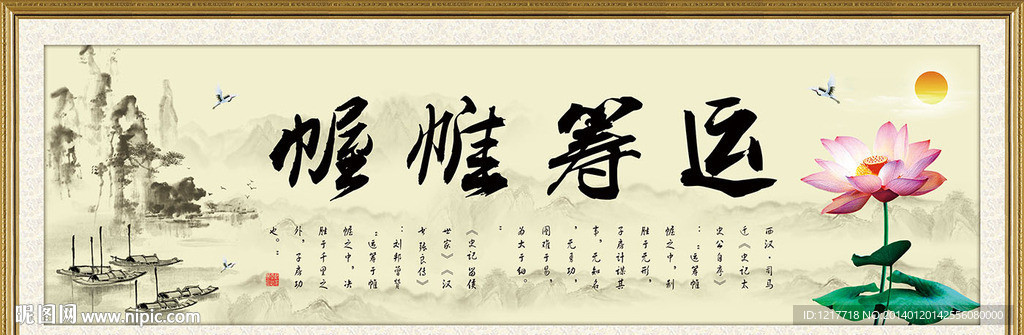 运筹帷幄
西汉·司马
迁《史记太
史公自序》
：“运筹帷
幄之中，制
胜于无形，
子房计谋其
事，无知名
，无勇功，
图难于易，
为大于细。
”
《史记留侯
世家》《汉
书张良传》
：刘邦曾赞
“运筹于帷
幄之中，决
胜于千里之
外，子房功
也。
昵图网 www.nipic.com
ID:1217718 NO:20140120142556080000